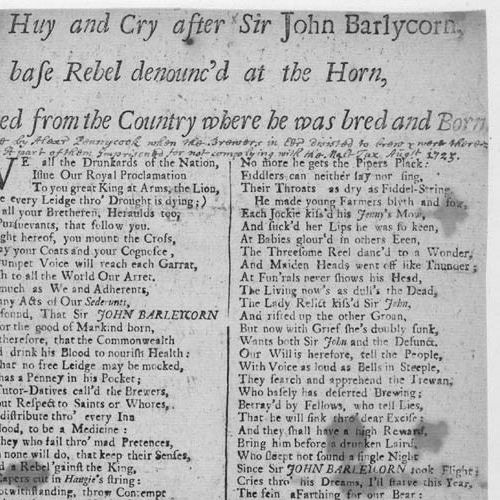 Huy and Cry after Sir John Barlycorn,
baſe Rebel denounc'd at the Horn,
ed from the Country where he was bred and Born
by Alexr Pennycook when the Brewers in Edr
A part of them Imprisoned for not complying with the Malt Tax, Augst 1725.
VE all the Drunkards of the Nation,
Iſſue Our Royal Proclamation
To you great King at Arms, the Lion,
e every Leidge thro' Drought is dying;)
all your Bretheren, Heraulds too,
Purſevants, that follow you.
ght hereof, you mount the Croſs,
y your Coats and your Cogneſce,
rumpet Voice will reach each Garrat,
h to all the World Our Arret.
much as We and Adherents,
any Acts of Our Sederunts,
found, That Sir JOHN BARLEYCORN
or the good of Mankind born,
therefore, that the Commonwealth
d drink his Blood to nouriſh Health:
hat no free Leidge may be mocked,
has a Penney in his Pocket;
utor-Datives call'd the Brewers,
out Reſpect to Saints or Whores,
diſtribute thro' every Inn
Blood, to be a Medicine:
they who fail thro' mad Pretences,
n none will do, that keep their Senſes,
d a Rebel 'gainſt the King,
Capers cut in Haugie's ſtring:
otwithſtanding, throw Contempt
No more he gets the Pipers Plack:
Fiddlers can neither ſay nor ſing,
Their Throats as dry as Fiddel-String,
He made young Farmers blyth and
Each Jockie kiſs'd his Jenny's Mow,
And ſuck'd her Lips he was ſo keen,
At Babies glour'd in others Eeen,
The Threeſome Reel danc'd to a Wonder,
And Maiden Heads went off like Thunder;
At Fun'rals never ſhows his Head,
The Living now's as dull's the Dead,
The Lady Relict kiſs'd Sir John,
And rifled up the other Groan,
But now with Grief ſhe's doubly ſunk,
Wants both Sir John and the Defunct.
Our Will is herefore, tell the People,
With Voice as loud as Bells in Steeple,
They ſearch and apprehend the
Who baſely has deſerted Brewing;
Betray'd by Fellows, who tell Lies,
That he will ſink thro' dear Exciſe:
And they ſhall have a high Reward,
Bring him before a drunken Laird,
Who ſleept not found a ſingle Night
Since Sir JOHN BARLEYCORN took Flight;
Cries thro' his Dreams, I'll ſtarve this Year,
The ſein a Farthing for our Bear: